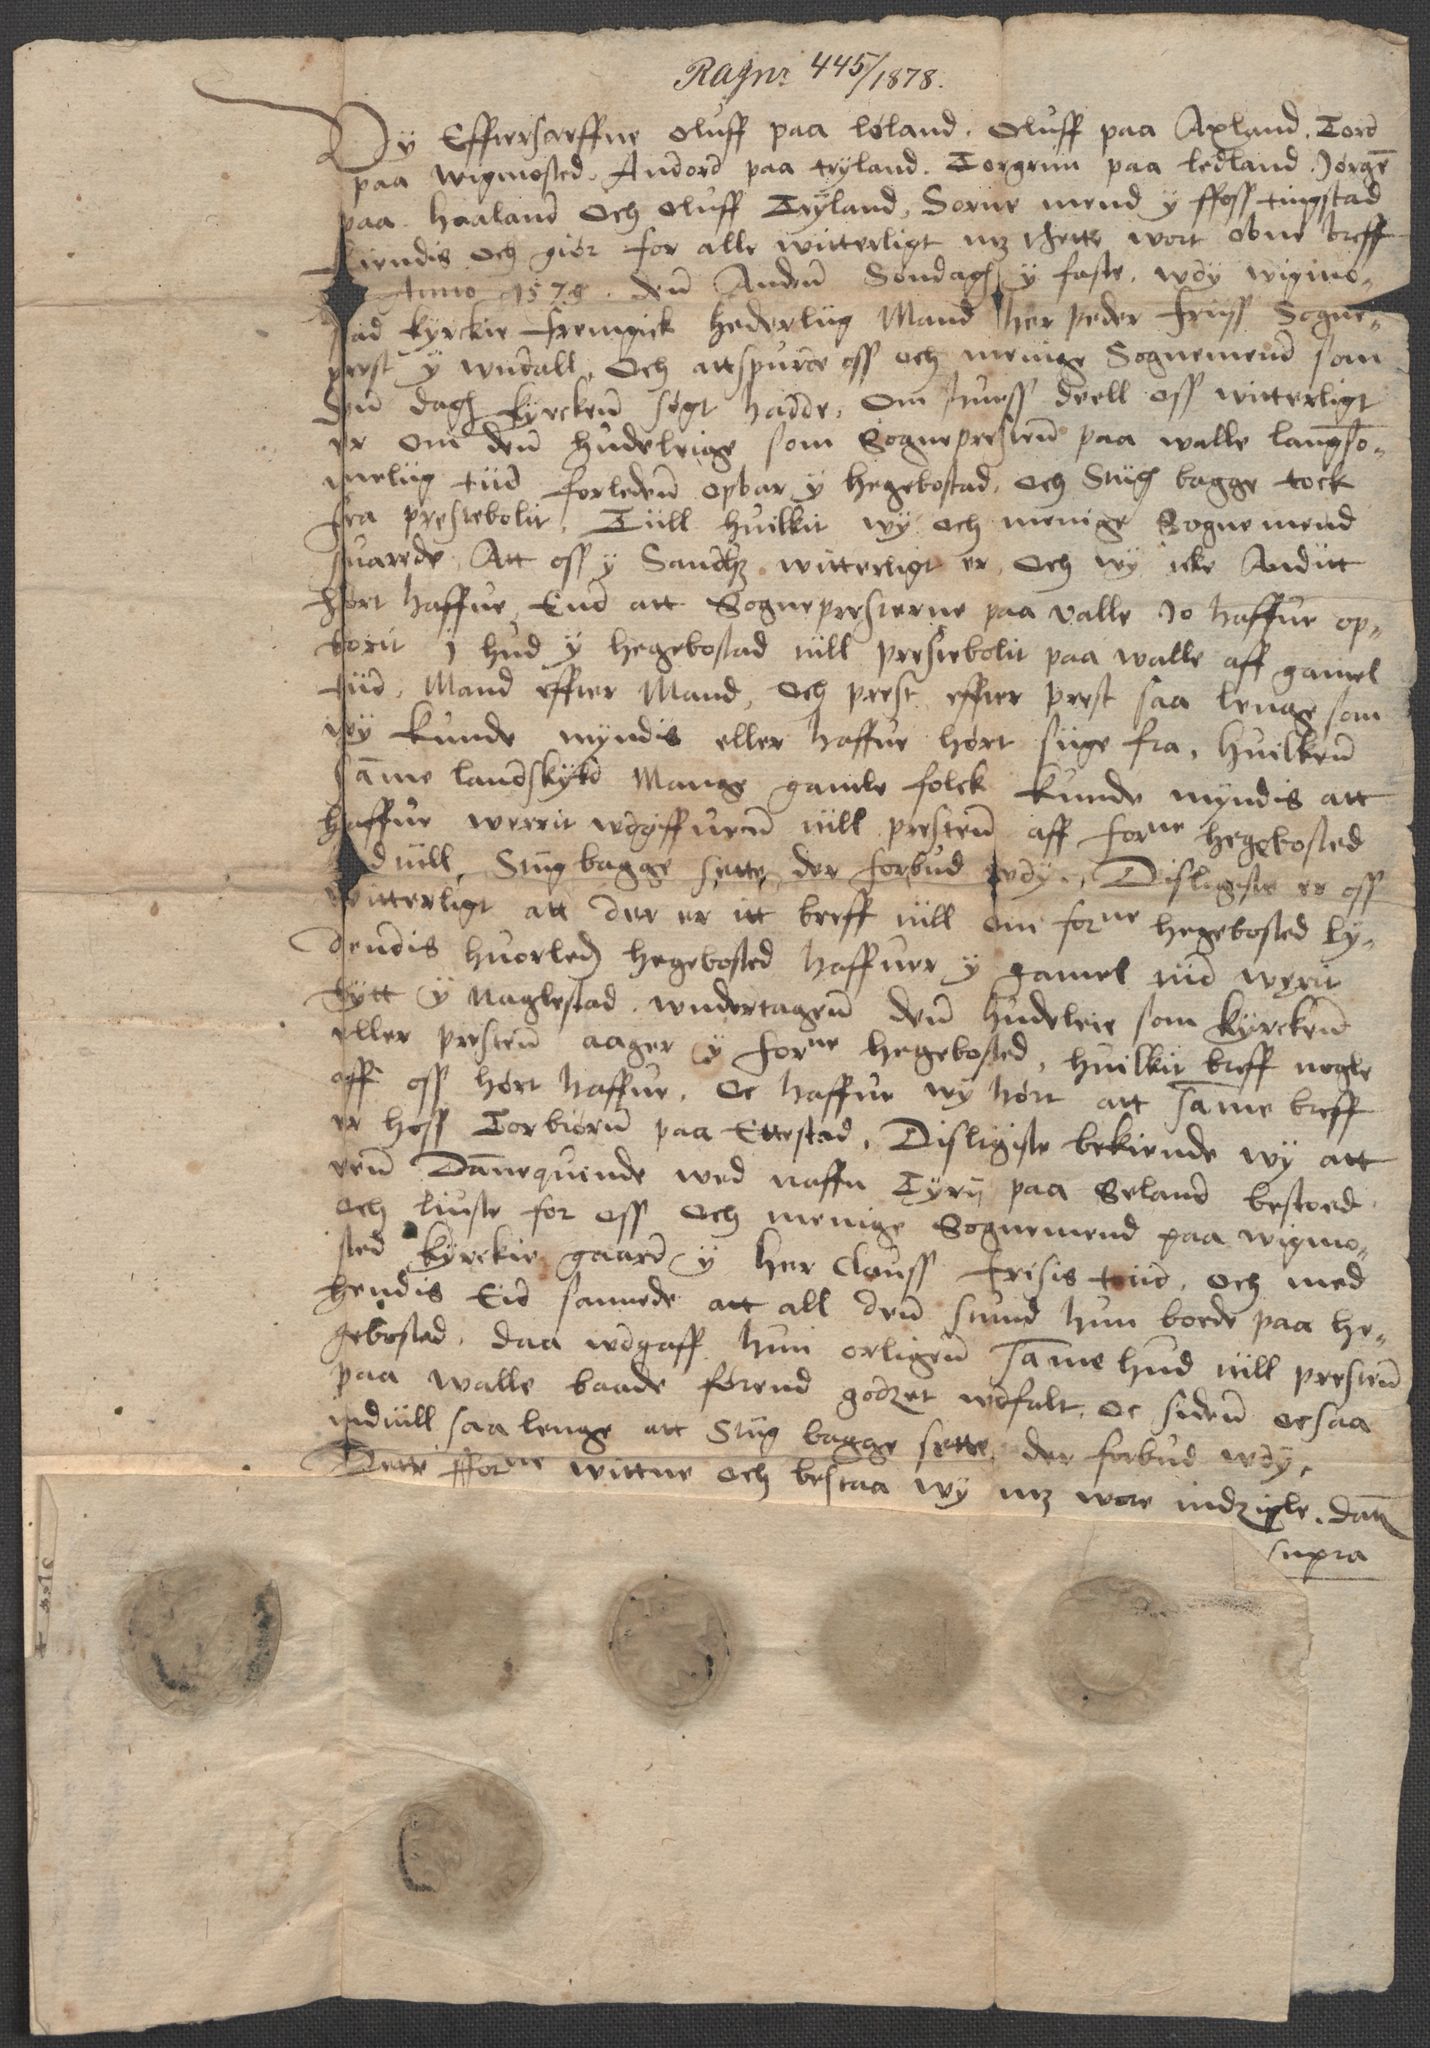 Ragnr 445/1878.
Wy Effterscreffne Oluff paa løland. Oluff paa Axland. Tord
paa wigmosted. Andord paa tryland. Torgrim paa ledland. Jørgen
paa haaland Och oluff Tryland, Sorne mend y ffoss tingstad
kiendis och giør for alle witterligt mz thette wort obne breff
Anno 157. den Anden Søndagh y faste. wdy wigmo-
stad kyrckie fremgick hederlig Mand her peder friiss Sogne-
prest y wndall. Och attspurde oss och menige Sognemend som
den dagh kyrcken søgt hadde, Om huess deell oss witterligt
er om den hudeleige som Sognepresten paa walle langso-
melig tiid forleden opbar y hegebostad, och Stiig bagge tock
fra prestebolit. Tiill huilkit wy och menige Sognemend
suarede Att oss y Sandhz witterligt er, Och wy icke Anditt
hørt haffue End att Sognepresterne paa valle Jo haffue op-
borit j hud y hegebostad till prestebolit paa walle aff gamel
tiid, Mand effter Mand, Och prest effter prest saa lenge som
wy kunde myndis eller haffue hørt siige fra, huilken
samme landskyld Mange gamle folck kunde myndis att
haffue werrit wdgiffuen till presten aff forne hegebosted
Indtill Stiig bagge sette der forbud wdy. Disligiste er oss
witterligt att der er itt breff till om forne hegebosted ly-
dendis huorledis hegebosted haffuer y gamel tiid werit
bytt y Naglestad. wndertagen den hudeleie som kyrcken
eller presten aager y forne hegebosted, huilkit breff nogle
aff oss hørt haffue. Oc haffue wy hørt att samme breff
er hoss Torbiørn paa Ettestad. Disligiste bekiende wy att
een Dannequinde wed naffn Tyrij paa Seland bestoed
och liuste for oss och menige Sognemend paa wigmo-
sted kyrckie gaard y her Clauss frisis tiid, och med
hendis Eid sannede att all den stund hun boede paa he-
gebosted, daa wdgaff hun orligen samme hud till presten
paa walle baade førend godzet wdfalt, oc siden ocsaa
indtill saa lenge att Stiig bagge sette der forbud wdy,
Dette fforne wittne och bestaa wy mz wore indzigle. Datum
supra